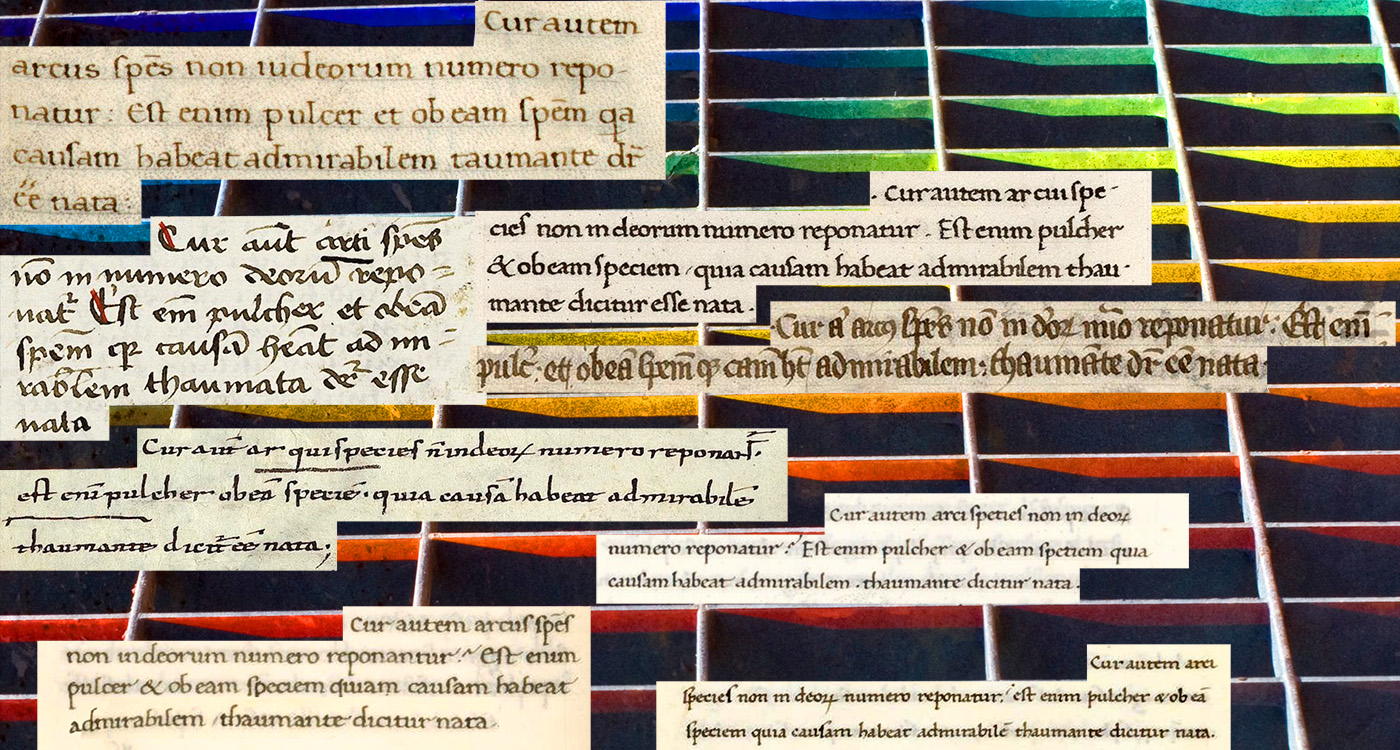 Cur autem
arcus sp̄es non iudeorum numero repo-
natur: Est enim pulcer et ob eam sp̄em qa
causam habeat admirabilem taumante dr̄
ēē nata:
Cur aūt arcti sp̄es
nō in numero deorū repo-
nat᷑ Est em̄ pulcher et ob eā
sp̄em causā heāt ad mi-
rab̄lem thaumata esse
nata
. Cur autem arcui spe-
cies non in deorum numero reponatur. Est enim pulcher
& ob eam speciem, quia causam habeat admirabilem thau-
mante dicitur esse nata.
Cur arcꝰ sp̄es nō in reponatur. Est em̄
pulc̄. et ob eā sp̄em admirabilem: thaumāte dr̄ ēē nata
Cur aūt ar qui species n̄ in deoꝝ numero reponat᷑.
est eni pulcher ob eā speciē. quia causā habeat admirabilē
thaumante dicit᷑ ēē nata;
Cur autem arci speties non in deoꝝ
numero reponatur. Est enim pulcher & ob eam spetiem quia
causam habeat admirabilem. thaumante dicitur nata.
Cur autem arcus sp̄es
non in deorum numero reponantur. Est enim
pulcer & ob eam speciem quiam causam habeat
admirabilem, thaumante dicitur nata.
Cur autem arci
species non in deoꝝ numero reponatur. est enim pulcher & ob eā
speciem quia causam habeat admirabilē thaumante dicitur nata.